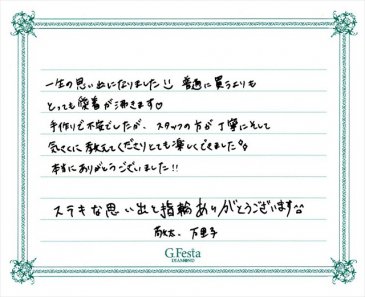 一生の思い出になりました 普通に買うよりも
とっても愛着が沸きます♡
手作りで不安でしたが、スタッフの方が丁寧にそして
気さくに教えてくださりとても楽しくできました
本当にありがとうございました!!
ステキな思い出と指輪ありがとうございます
万里子
G.Festa
DIAMOND